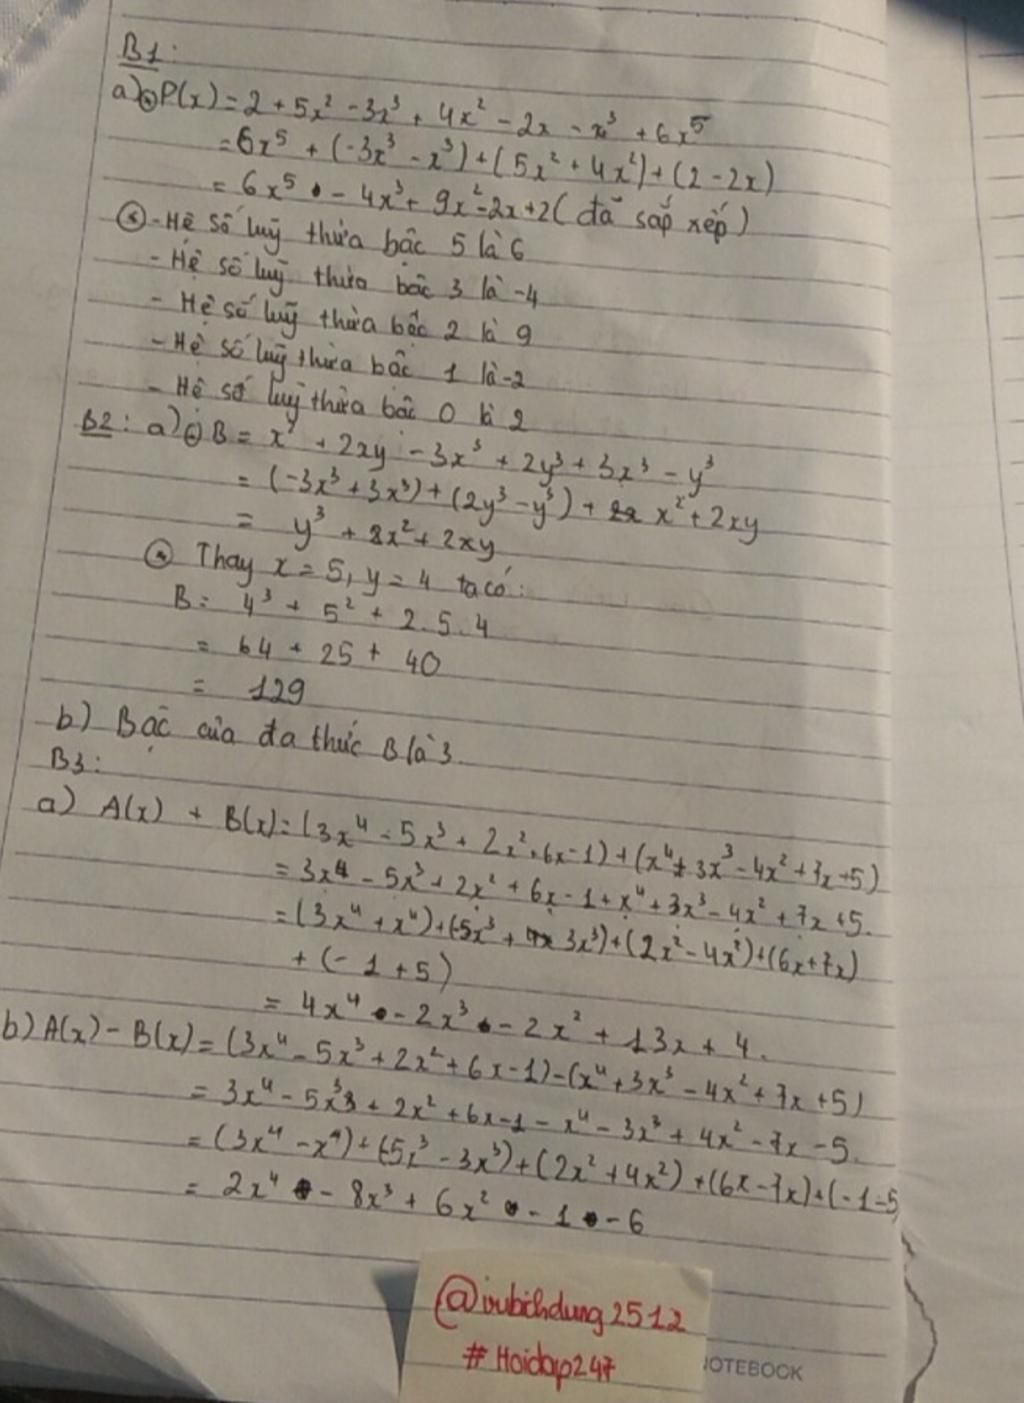 B1:
a) P(x) = 2 + 5x² - 3x³ + 4x² - 2x - x³ + 6x⁵
= 6x⁵ + (-3x³ - x³) + (5x² + 4x²) + (2 - 2x)
= 6x⁵ - 4x³ + 9x² - 2x + 2 (đã sắp xếp)
- Hệ số luỹ thừa bậc 5 là 6
- Hệ số luỹ thừa bậc 3 là -4
- Hệ số luỹ thừa bậc 2 là 9
- Hệ số luỹ thừa bậc 1 là -2
- Hệ số luỹ thừa bậc 0 là 2
B2: a) B = x² + 2xy - 3x³ + 2y³ + 3x³ - y³
= (-3x³ + 3x³) + (2y³ - y³) + x² + 2xy
= y³ + x² + 2xy
Thay x = 5, y = 4 ta có:
B = 4³ + 5² + 2.5.4
= 64 + 25 + 40
= 129
b) Bậc của đa thức B là 3.
B3:
a) A(x) + B(x) = (3x⁴ - 5x³ + 2x² + 6x - 1) + (x⁴ + 3x³ - 4x² + 7x + 5)
= 3x⁴ - 5x³ + 2x² + 6x - 1 + x⁴ + 3x³ - 4x² + 7x + 5.
= (3x⁴ + x⁴) + (-5x³ + 3x³) + (2x² - 4x²) + (6x + 7x)
+ (-1 + 5)
= 4x⁴ - 2x³ - 2x² + 13x + 4.
b) A(x) - B(x) = (3x⁴ - 5x³ + 2x² + 6x - 1) - (x⁴ + 3x³ - 4x² + 7x + 5)
= 3x⁴ - 5x³ + 2x² + 6x - 1 - x⁴ - 3x³ + 4x² - 7x - 5.
= (3x⁴ - x⁴) + (-5x³ - 3x³) + (2x² + 4x²) + (6x - 7x) + (-1 - 5)
= 2x⁴ - 8x³ + 6x² - 1 - 6
#Hoidap247
NOTEBOOK